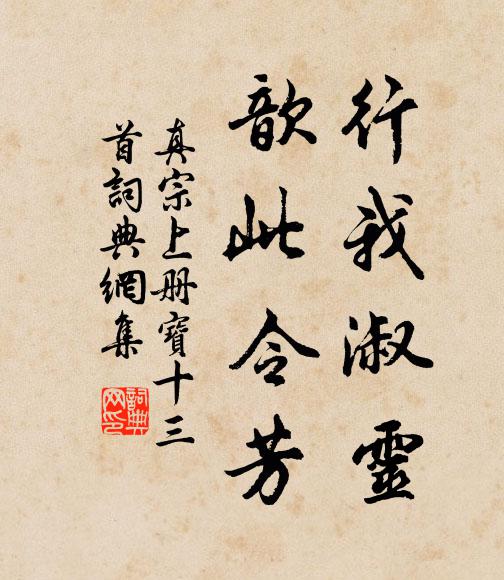 行我淑靈
歆此令芳
真宗上册寶十三
首詞典網集
詞典
网印